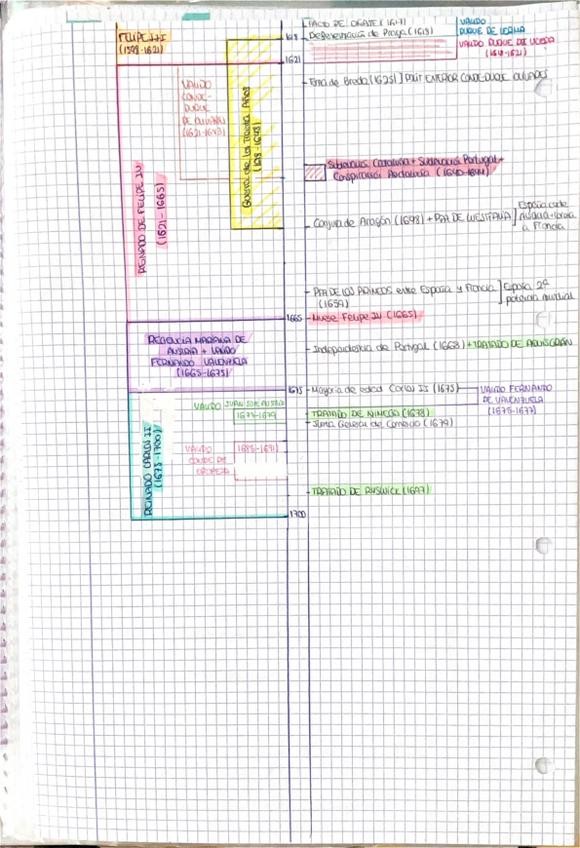 PACTO DE OÑATE (1617)
FELIPE III
(1598-1621)
1618
Defenestración de Praga (1618)
VALIDO
DUQUE DE LERMA
VALIDO DUQUE DE UCEDA
(1618-1621)
1621
VALIDO
CONDE-
DUQUE
DE OLIVARES
(1621-1643)
Guerra de los Treinta Años
(1618-1648)
Toma de Breda (1625)] POLIT EXTERIOR CONDE-DUQUE OLIVARES
REINADO DE FELIPE IV
(1621-1665)
Sublevación Cataluña + Sublevación Portugal +
Conspiración Andalucía (1640-1644)
Conjura de Aragón (1648) + PAZ DE WESTFALIA]
España cede
a Francia
PAZ DE LOS PIRINEOS entre España y Francia] España 2ª
(1659)
potencia mundial
1665
Muere Felipe IV (1665)
REGENCIA MARIANA DE
AUSTRIA + VALIDO
FERNANDO VALENZUELA
(1665-1675)
Independencia de Portugal (1668) + TRATADO DE AQUISGRÁN
1675
Mayoría de edad Carlos II (1675)
VALIDO FERNANDO
DE VALENZUELA
(1675-1677)
REINADO CARLOS II
(1675-1700)
VALIDO JUAN JOSE AUSTRIA
1677-1679
TRATADO DE NIMEGA (1678)
Junta General de Comercio (1679)
VALIDO
CONDE DE
OROPESA
1685-1691
TRATADO DE RYSWICK (1697)
1700